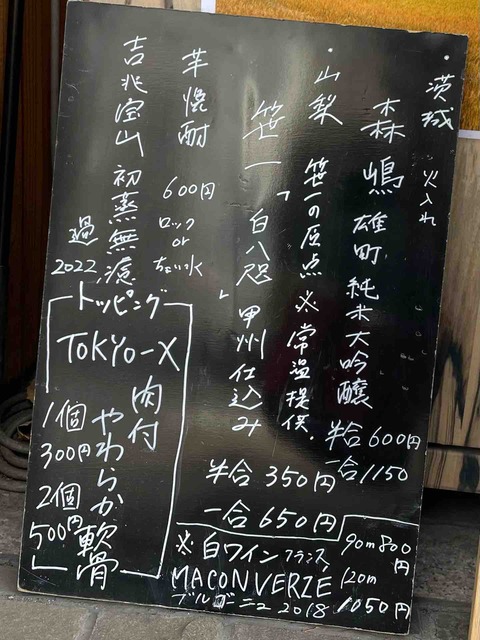 ・茨城 火入れ
森嶋 雄町 純米大吟醸
半合 600円
一合 1150
・山梨 笹一の原点 ※常温提供.
笹一「白八咫」甲州仕込み
半合 350円
一合 650円
芋焼酎 600円
ロック
or
ちょい水
吉兆宝山 初蒸無濾過
2022
トッピング
TOKYO-X
肉付
やわらか軟骨
1個
300円
2個
500円
※白ワイン フランス
MACON VERZE
ブルゴーニュ 2018
90m 800円
120m 1050円